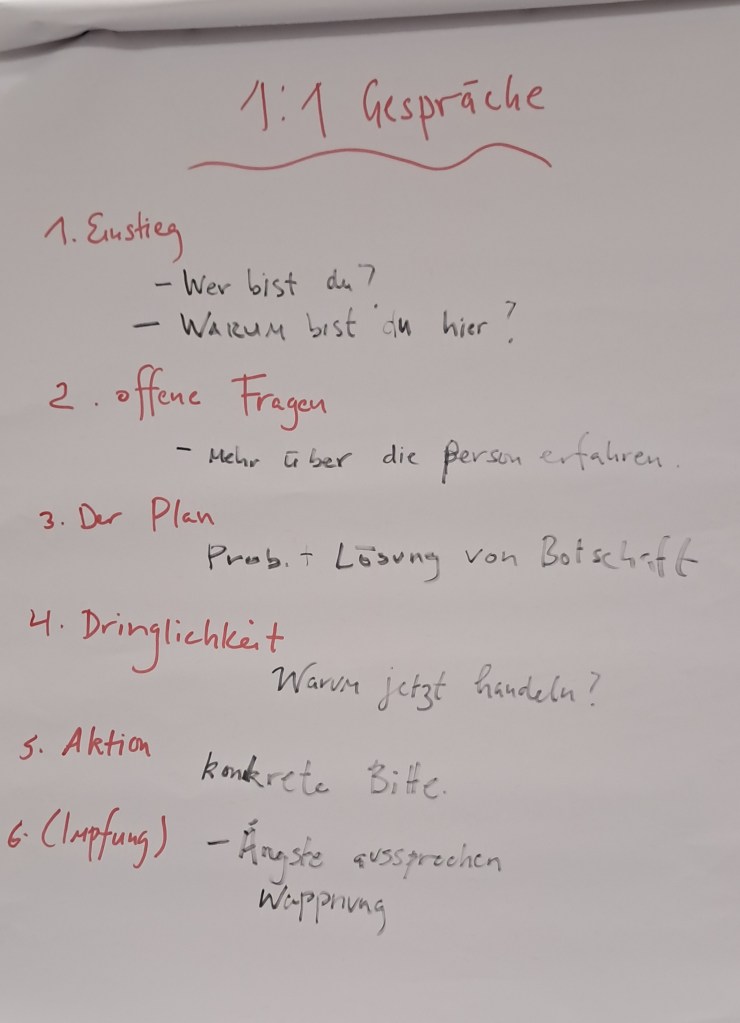 1:1 Gespräche
1. Einstieg
- Wer bist du?
- WARUM bist du hier?
2. offene Fragen
- Mehr über die Person erfahren.
3. Der Plan
Prob. + Lösung von Botschaft
4. Dringlichkeit
Warum jetzt handeln?
5. Aktion
konkrete Bitte.
6. (Impfung)
- Ängste aussprechen
Wappnung